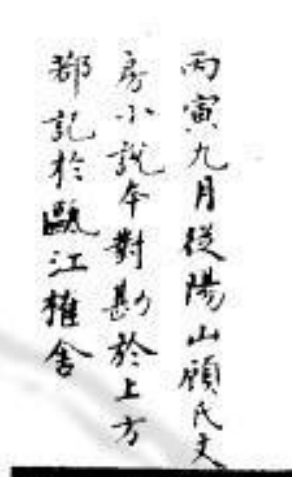 丙寅九月從陽山顧氏文
房小說本對勘於上方
鄀記於甌江榷舍